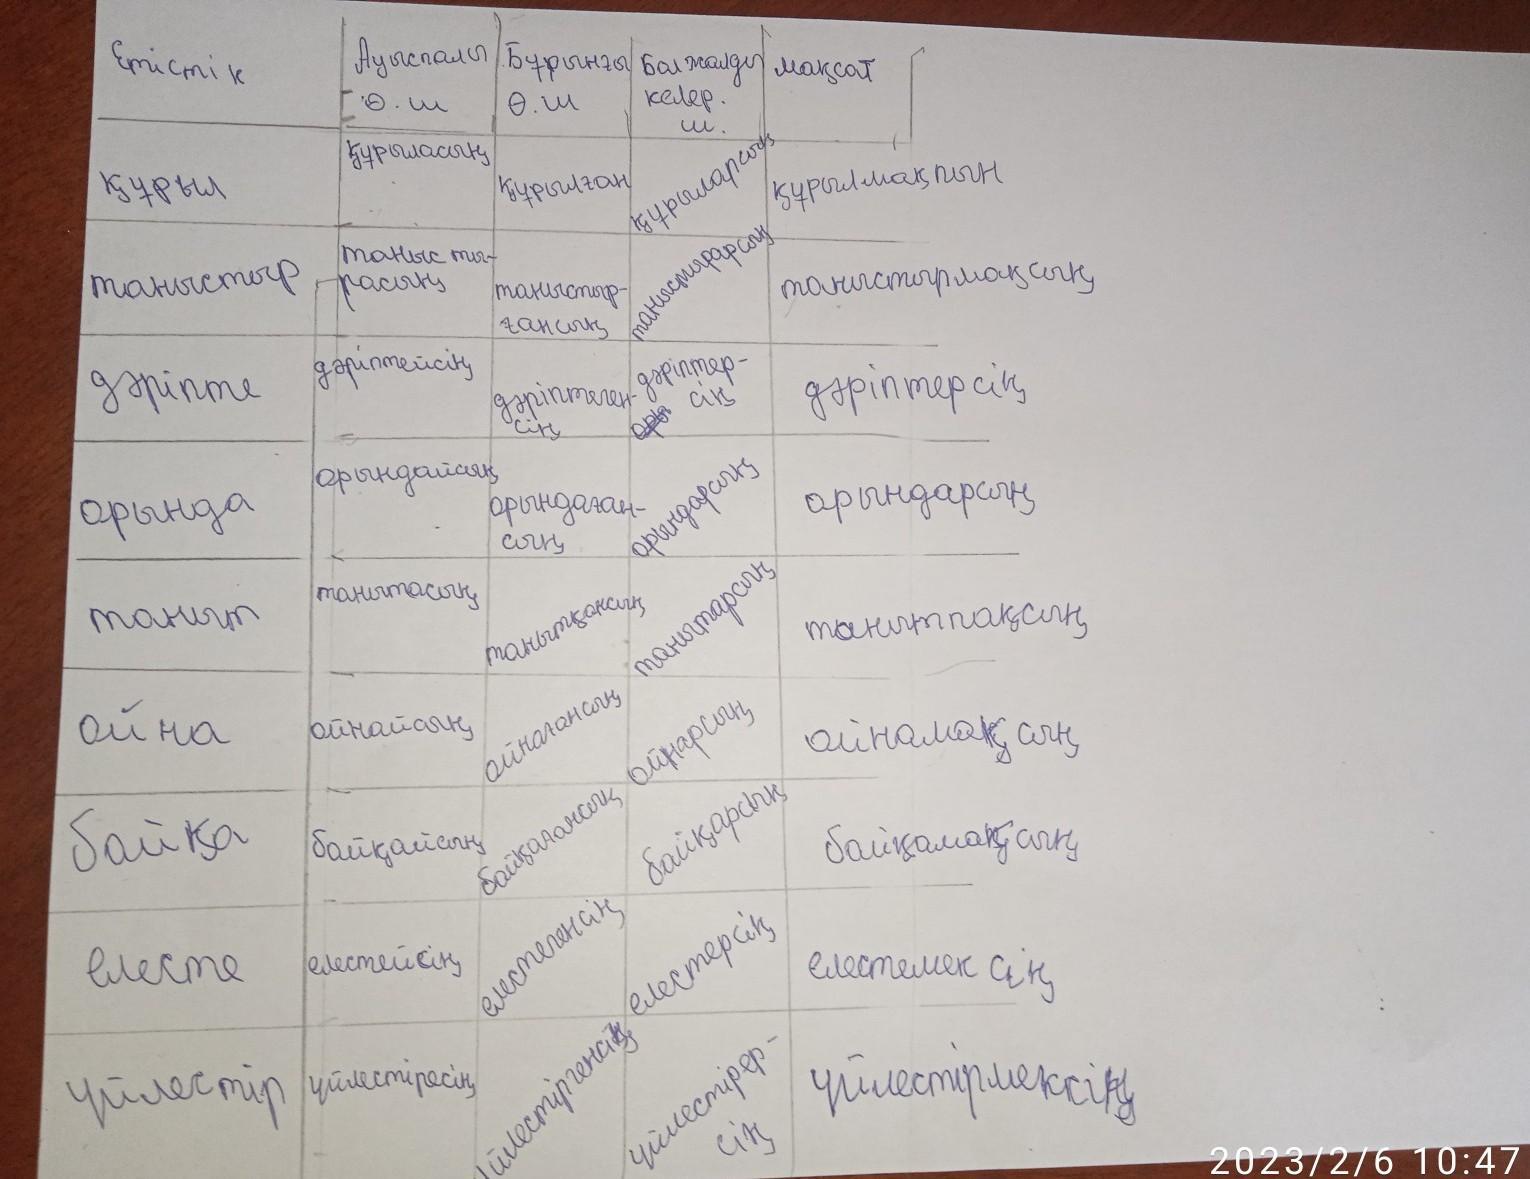 Етістік
Ауыспалы
Ө.ш
Бұрынғы
Ө.ш
Болжалды
келер.
ш.
мақсат
құрыл
құрыласың
құрылған
құрыларсың
құрылмақпын
таныстыр
танысты-
расың
таныстыр-
ғансың
таныстырарсың
таныстырмақсың
дәріпте
дәріптейсің
дәріптеген-
сің
дәріптер-
сің
дәріптерсің
орында
орындайсың
орындаған-
сың
орындарсың
орындарсың
таныт
танытасың
танытқансың
танытарсың
танытпақсың
ойна
ойнайсың
ойнағансың
ойнарсың
ойнамақсың
байқа
байқайсың
байқағансың
байқарсың
байқамақсың
елесте
елестейсің
елестегенсің
елестерсің
елестемек сің
үйлестір
үйлестіресің
үйлестіргенсің
үйлестірер-
сің
үйлестірмексің
2023/2/6 10:47